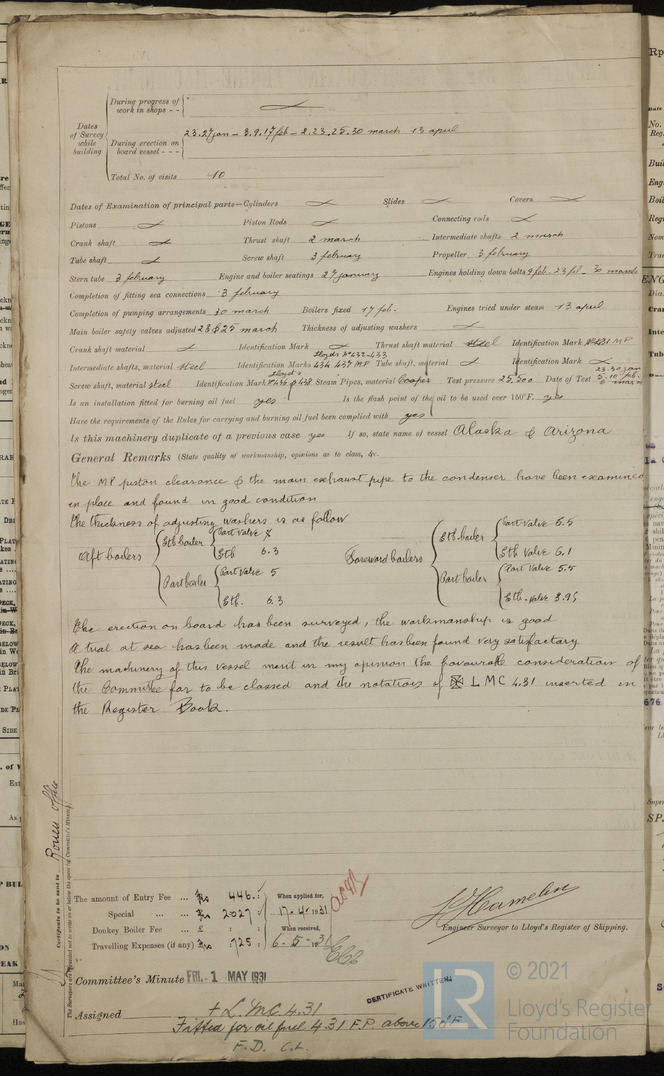 Dates of Survey while building
During progress of work in shops - -
During erection on board vessel - - - 23.27 Jan - 3.9.17 feb - 2.23.25.30 march 13 april
Total No. of visits 10
Dates of Examination of principal parts—Cylinders Slides Covers
Pistons Piston Rods Connecting rods
Crank shaft Thrust shaft 2 march Intermediate shafts 2 march
Tube shaft Screw shaft 3 february Propeller 3 february
Stern tube 3 february Engine and boiler seatings 27 january Engines holding down bolts 9 feb. 23 feb - 30 march
Completion of fitting sea connections 3 february
Completion of pumping arrangements 30 march Boilers fixed 17 feb. Engines tried under steam 13 april
Main boiler safety valves adjusted 23 & 25 march Thickness of adjusting washers
Crank shaft material Identification Mark Thrust shaft material steel Identification Mark 431 MP
Lloyds No 432-433
Intermediate shafts, material steel Identification Marks 434 437 MP Tube shaft, material Identification Mark
Lloyd's
Screw shaft, material steel Identification Mark No 436 & 438 Steam Pipes, material Cooper Test pressure Date of Test
Is an installation fitted for burning oil fuel yes Is the flash point of the oil to be used over 150°F. yes
Have the requirements of the Rules for carrying and burning oil fuel been complied with yes
Is this machinery duplicate of a previous case yes If so, state name of vessel Alaska & Arizona
General Remarks (State quality of workmanship, opinions as to class, &c.
The MP piston clearance & the main exhaust pipe to the condenser have been examined
in place and found in good condition
The thickness of adjusting washers is as follow
Aft boilers Stb boiler Port Valve Stb 6.3
Port boiler Port Valve 5 Stb. 6.3
Foreward boilers Stb. boiler Port Valve 6.5 Stb Valve 6.1
Port boiler Port Valve 5.5 Stb. Valve
The erection on board has been surveyed, the workmanship is good
A trial at sea has been made and the result has been found very satisfactory
The machinery of this vessel merit in my opinion the favourable consideration of
the Committee for to be classed and the notation of LMC 4.31 inserted in
the Register Book.
Certificate to be sent to Rouen office
The amount of Entry Fee ... Frs 446. : When applied for,
Special ... ... Frs 2027 : 17-4-1931
Donkey Boiler Fee ... £ : : When received,
Travelling Expenses (if any) Frs 725 : 6-5-1931
Hamelin
Engineer Surveyor to Lloyd's Register of Shipping.
Committee's Minute FRI. 1 MAY 1931
CERTIFICATE WRITTEN
Assigned + L.M.C. 4.31
Fitted for oil fuel 4.31 F.P. above 150°F
F.D. C.L.
© 2021
LR
Lloyd's Register
Foundation